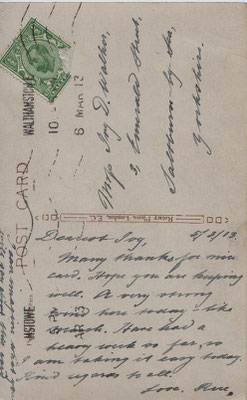 POST CARD
WALTHAMSTOW
10
6 MAR 13
Miss Ivy D. Walker,
3, Emerald Street,
Saltburn by Sea,
Yorkshire.
Rotary Photo, London, E.C.
5/3/13.
Dearest Ivy,
Many thanks for nice
card. Hope you are keeping
well. A very strong
wind here today – like
March. Have had a
heavy week so far, so
I am taking it easy today.
Kind regards to all.
Love,